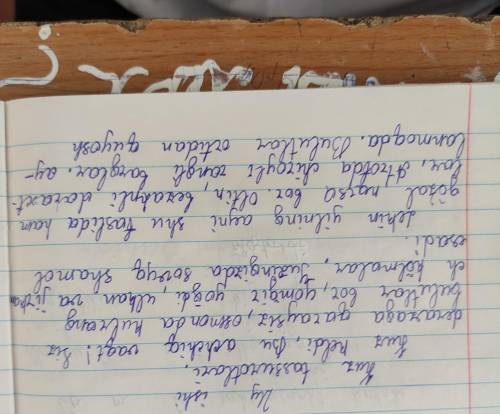 Uy ishi
Kuz tassurotlari.
Kuz keldi, bu achchiq vaqt! Siz
derazaga qaraysiz, osmonda kulrang
bulutlar bor, yomg'ir yog'di, ulkan va jirkan
ch ko'lmalar, yuzingizda sovuq shamol
esadi.
Lekin yilning ayni shu faslida ham
go'zal narsa bor. Oltin, bezakli, daraxt-
lar. Atrofda chiroyli rangli barglar ay-
lanmoqda. Bulutlar ortidan quyosh